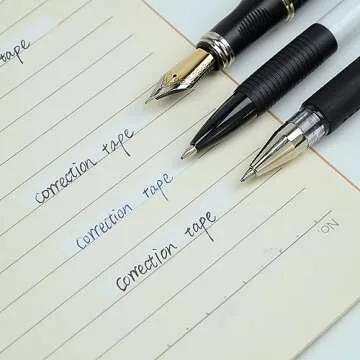 tape
correction tape
correction tape
correction tape
NO.